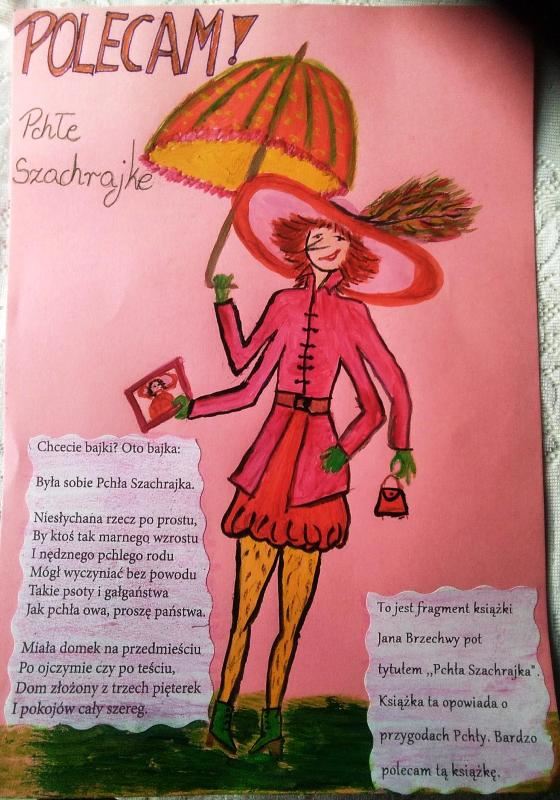 POLECAM!
Pchłe
Szachrajke
Chcecie bajki? Oto bajka:
Była sobie Pchła Szachrajka.
Niesłychana rzecz po prostu,
By ktoś tak marnego wzrostu
I nędznego pchlego rodu
Mógł wyczyniać bez powodu
Takie psoty i gałgaństwa
Jak pchła owa, proszę państwa.
Miała domek na przedmieściu
Po ojczymie czy po teściu,
Dom złożony z trzech pięterek
I pokojów cały szereg.
To jest fragment książki
Jana Brzechwy pot
tytułem ,,Pchła Szachrajka".
Książka ta opowiada o
przygodach Pchły. Bardzo
polecam tą książkę.